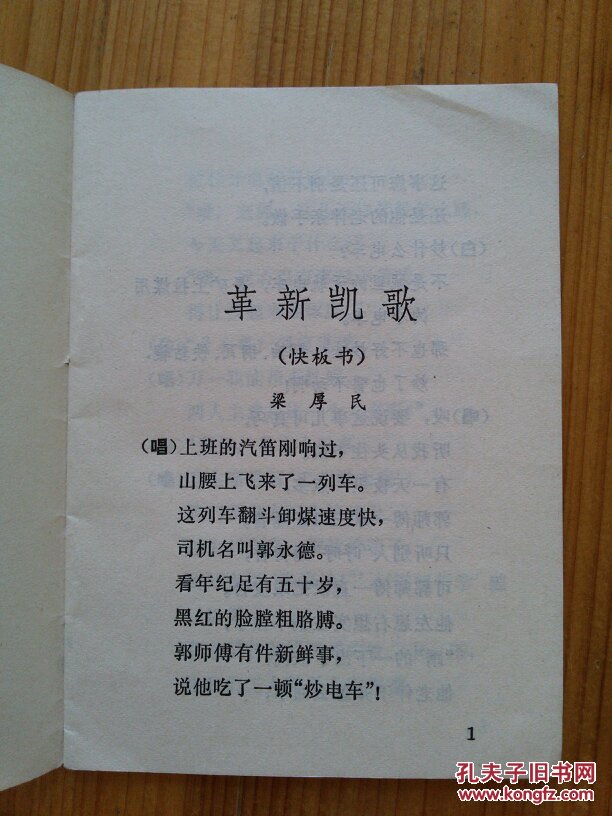 革新凯歌
(快板书)
梁厚民
(唱)上班的汽笛刚响过，
山腰上飞来了一列车。
这列车翻斗卸煤速度快，
司机名叫郭永德。
看年纪足有五十岁，
黑红的脸膛粗胳膊。
郭师傅有件新鲜事，
说他吃了一顿“炒电车”！
1
孔夫子旧书网
www.kongfz.com